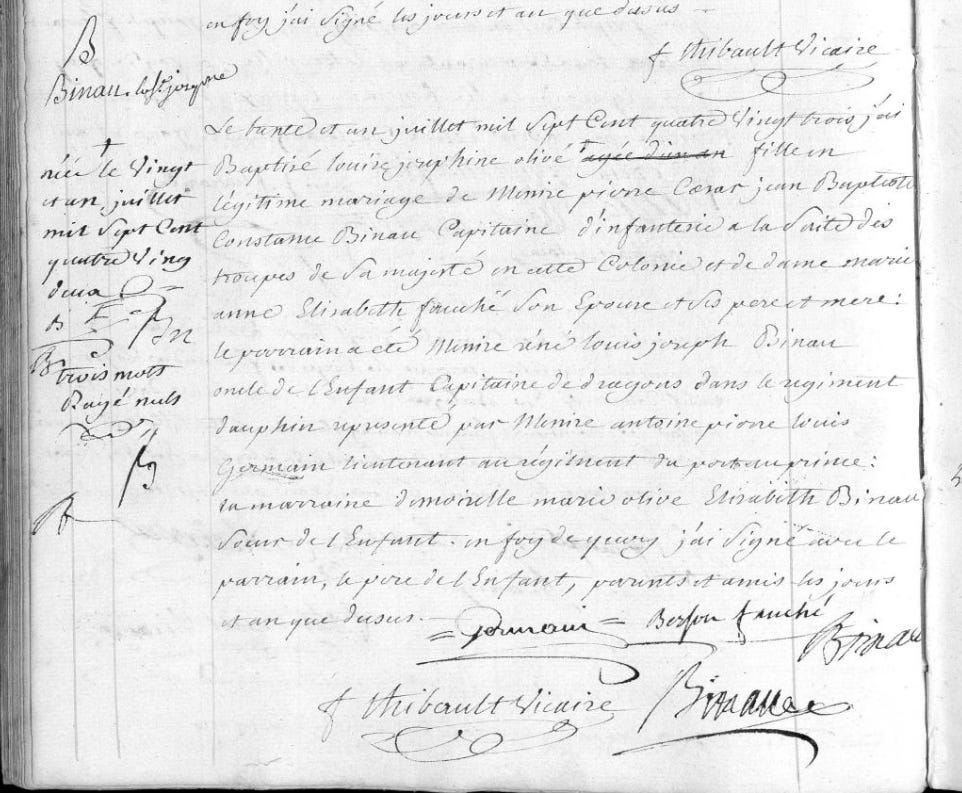 en foy j'ai signé les jours et an que dusus
f thibault Vicaire
B
Binau. josephine
Le trante et un juillet mil Sept Cent quatre Vingt trois j'ai
Baptisé louise josephine olive + agée d'un an fille en
légitime mariage de Messire pierre Cæsar jean Baptiste
Constans Binau Capitaine d'infanterie a la Suite des
troupes de Sa majesté en cette Colonie et de dame marie
anne Elisabeth fauché Son Epouse et Ses pere et mere:
le parrain a été Messire réné louis joseph Binau
oncle de l'Enfant Capitaine de dragons dans le regiment
dauphin représenté par Messire antoine pierre louis
Germain lieutenant au régiment du port au prince:
la marraine demoiselle marie olive Elisabeth Binau
Soeur de l'Enfant. en foy de quoy j'ai Signé avec le
parrain, le pere de l'Enfant, parents et amis les jours
et an que dusus.
+
née le Vingt
et un juillet
mil Sept Cent
quatre Ving
deux
trois mots
Rayé nuls
Germain
fauché
Binau
f thibault Vicaire
Binau